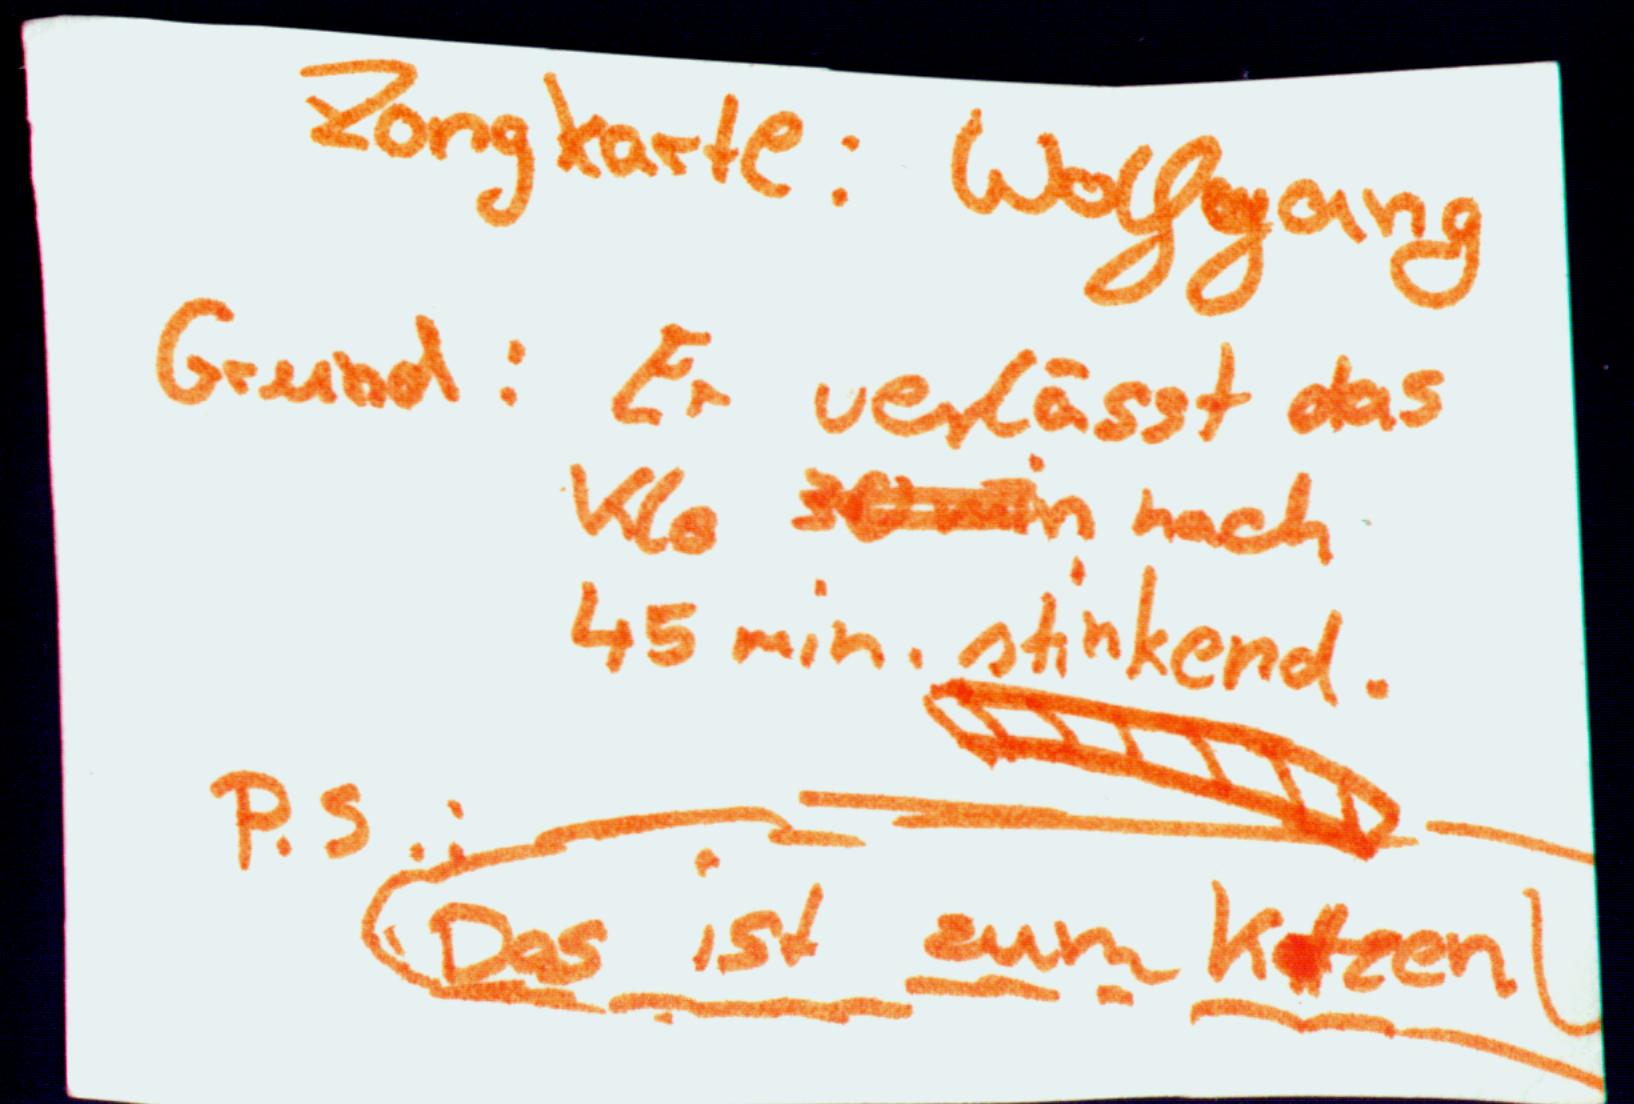 Zongkarte: Wolfgang
Grund: Er verlässt das
Klo nach
45 min. stinkend.
P.S.:
Das ist zum Kotzen